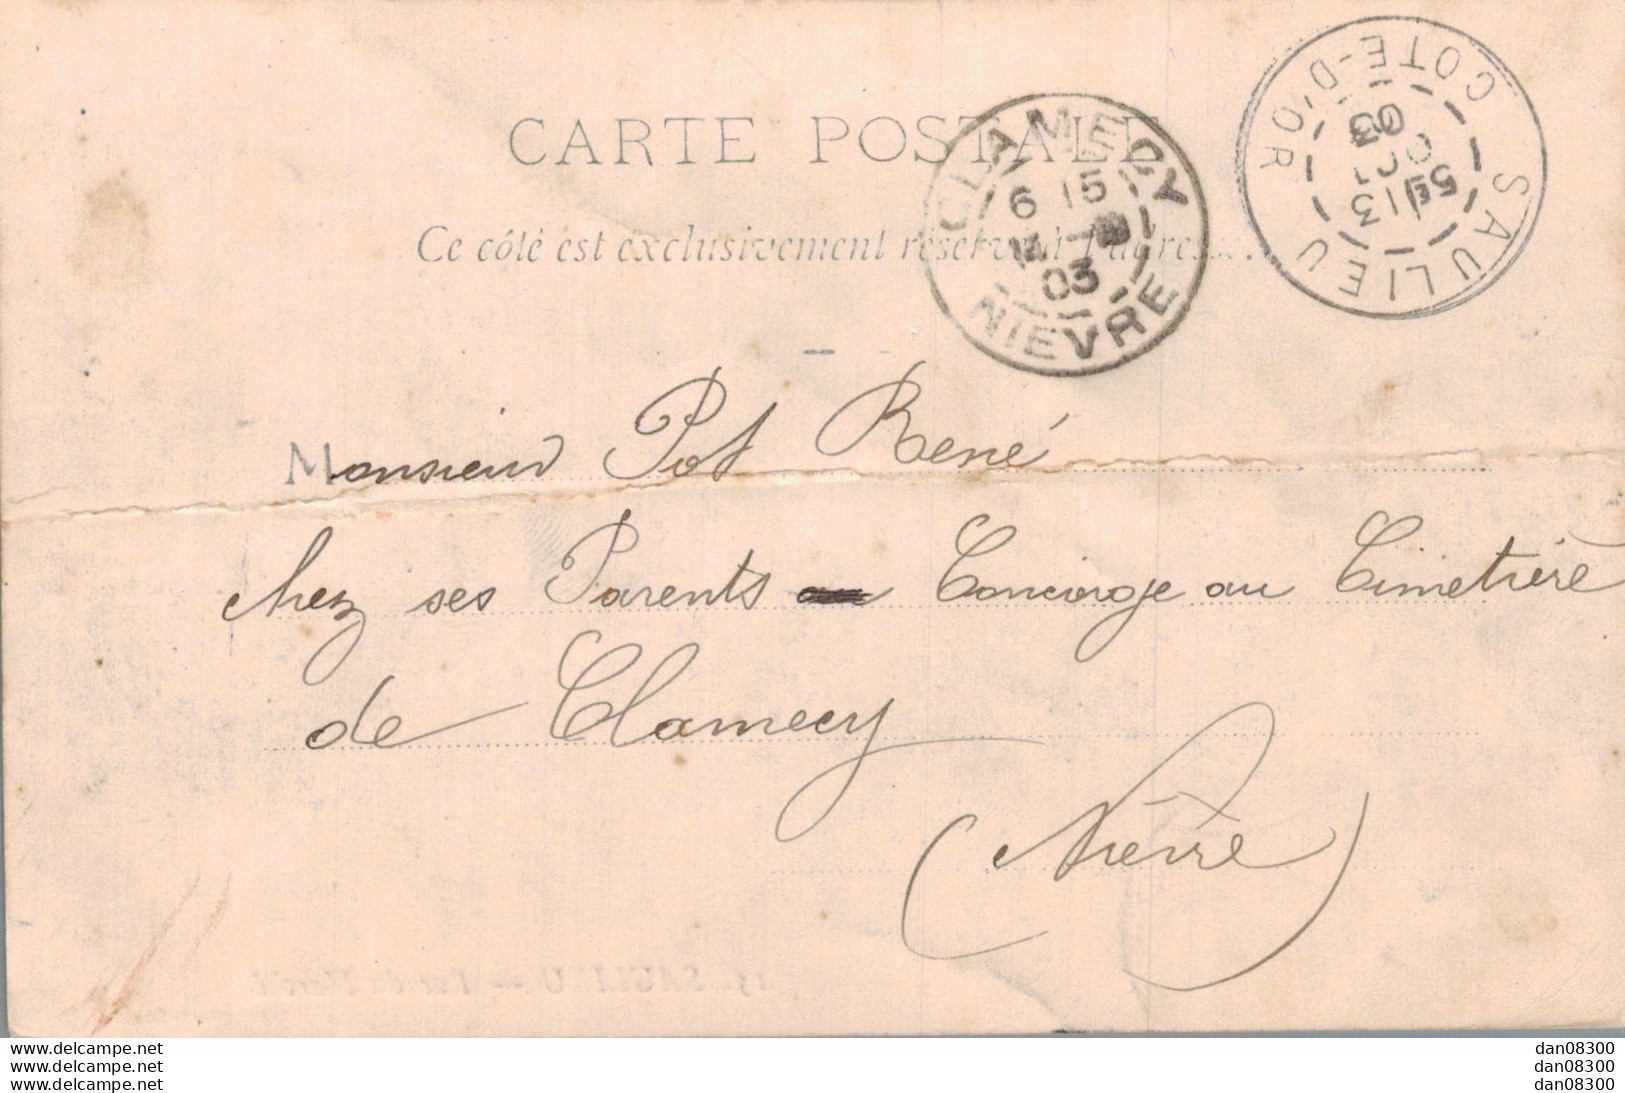 CARTE POSTALE
Ce côté est exclusivement réservé à l'adresse.
CLAMECY
6 15
03
NIEVRE
SAULIEU
COTE-D'OR
5E
13
OCT
03
Monsieur Pot René
chez ses Parents Concierge au Cimetière
de Clamecy
(Nièvre)
SAULIEU
www.delcampe.net
www.delcampe.net
www.delcampe.net
dan08300
dan08300
dan08300